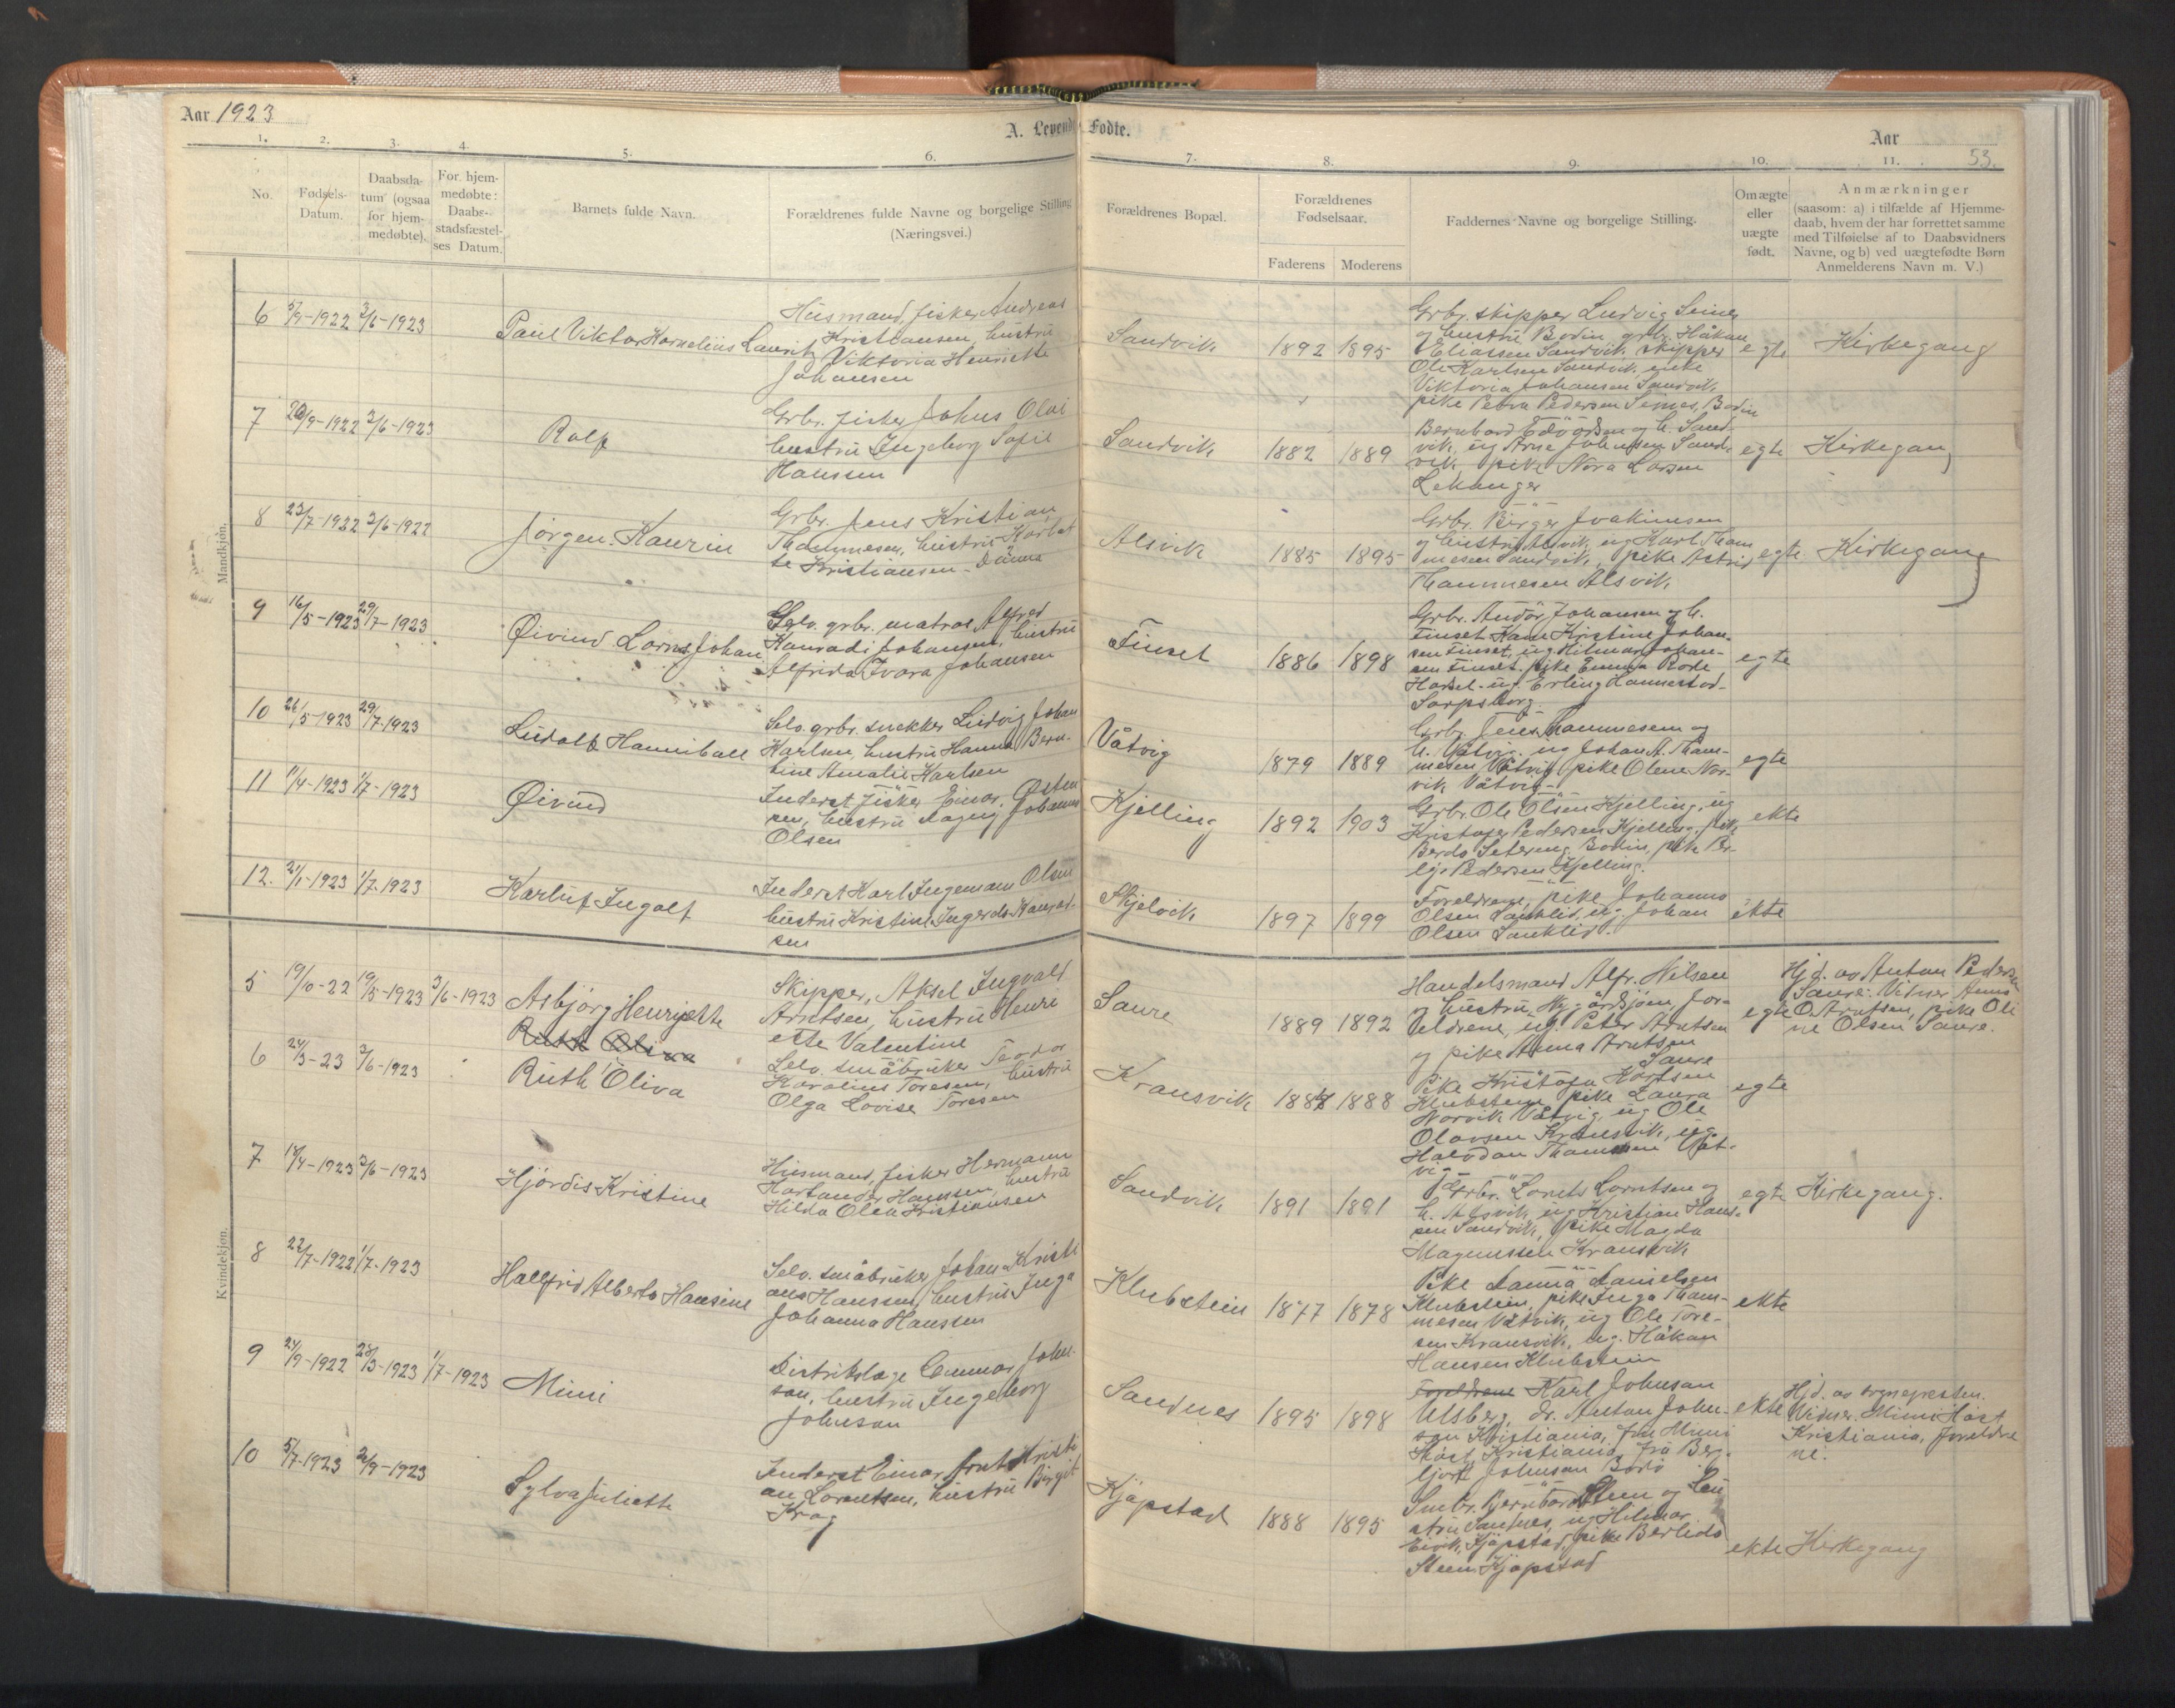 Aar 1923
A. Levend Fødte.
Aar
53.
1. 2. 3. 4. 5. 6. 7. 8. 9. 10. 11.
No.
Fødsels-
Datum.
Daabsda-
tum (ogsaa
for hjem-
medøbte).
For hjem-
medøbte:
Daabs-
stadsfæstel-
ses Datum.
Barnets fulde Navn.
Forældrenes fulde Navne og borgelige Stilling
(Næringsvei.)
Forældrenes Bopæl.
Forældrenes
Fødselsaar.
Faderens Moderens
Faddernes Navne og borgelige Stilling.
Om ægte
eller
uægte
født.
Anmærkninger
(saasom: a) i tilfælde af Hjemme-
daab, hvem der har forrettet samme
med Tilføielse af to Daabsvidners
Navne, og b) ved uægtefødte Børn
Anmelderens Navn m. V.)
Mandkjøn.
6 5/9-1922 3/6-1923
Paul Viktor Kornelius Lauritz
Husmand, fisker Andreas
Kristiansen, hustru
Viktoria Henriette
Johansen
Sandvik
1892 1895
Grbr. skipper Ludvig Seines
og hustru Bodin, grbr. Håkon
Eliassen Sandvik, skipper
Ole Karlsen Sandvik, enke
Viktoria Johansen Sandvik
pike Petra Pedersen Seines, Bodin
egte
Kirkegang
7 20/9-1922 3/6-1923
Rolf
Grbr. fisker Johus Olai
hustru Ingeborg Sofie
Hanssen
Sandvik
1882 1889
Bernhard Edvardsen og h. Sand-
vik, ug Arne Johansen Sand-
vik, pike Nora Larsen
Lekanger
egte
Kirkegang
8 23/7-1922 3/6-1922
Jørgen Kaurin
Grbr. Jens Kristian
Thommesen, hustru
te Kristiansen
Alsvik
1885 1895
Grbr. Birger Joakimsen
og hustru Alsvik, ug Karl Thom
mesen Sandvik, pike Astrid
Thommesen Alsvik
egte
Kirkegang
9 16/5-1923 29/7-1923
Øivind Lorns Johan
Selv. grbr. matros Alfred
Konradi Johansen, hustru
Alfrida Ivara Johansen
Finset
1886 1898
Grbr. Andor Johansen og h.
Finset Kristine Johan-
sen Finset, ug Hilmar Johan-
sen Finset, pike Emma Rode
ug. Erling Hannestad-
Sarpsborg.
egte
10 26/5-1923 29/7-1923
Ludolf Hannibal
Selv. grbr. snekker Ludvig Johan
Karlsen, hustru Hanna Bern-
tine Amalie Karlsen
Våtvig
1879 1889
Grbr. Jens Thommesen og
h. Våtvig, ug Johan A. Thom-
mesen Våtvig, pike Olene Nor-
vik Våtvig
egte
11 11/4-1923 1/7-1923
Øivind
Inderst fisker Einar Osten
sen, hustru Dagny Johanna
Olsen
Kjelling
1892 1903
Grbr. Ole Olsen Kjelling, ug
Kristofer Pedersen Kjelling, pike
Bodin, pike
Pedersen Kjelling.
ekte
12. 21/1-1923 1/7-1923
Karluf Ingolf
Inderst Karl Ingemann Olsen
hustru Kristine
sen
Skjelvik
1897 1899
Foreldrene, pike Johanna
Olsen ug. Johan
Olsen
ekte
Kvindekjøn.
5 19/10-22 19/5-1923 3/6-1923
Asbjørg Henriette
Skipper, Aksel Ingvald
Arntsen, hustru Henri
ette Valentine
Saure
1889 1892
Handelsmand Alfr. Nilsen
og hustru Nygårdsjøen, For-
eldrene, ug. Peter Arntsen
og pike Anna Arntsen
Saure
egte
Hjd. av Anton Pedersen
Saure. Vidner Anna
O. Arntsen, pike Oli
ne Olsen Saure.
Ruth Oliva
6 24/3-23 3/6-1923
Ruth Oliva
Selv. småbruker Teodor
Karolius Toresen, hustru
Olga Lovise Toresen
Kransvik
1887 1888
Pike Kristofa
Klubstein, pike Laura
Norvik Våtvig, ug Ole
Olavsen Kransvik, ug
Halvdan Thommesen Våt-
vig
egte
7 18/4-1923 3/6-1923
Hjørdis Kristine
Husmand, fisker Hermann
Hanssen, hustru
Hilda Olea Kristiansen
Sandvik
1891 1891
Grbr. Lornts Lorntsen og
h. Alsvik, ug Kristian Hans-
sen Sandvik, pike Magda
Magnussen Kransvik
egte
Kirkegang.
8 22/7-1922 1/7-1923
Hallfrid Alberta Hansine
Selv. småbruker Johan Kristi
ans Hanssen, hustru Inga
Johanna Hanssen
Klubstein
1877 1878
Pike Danielsen
Klubstein, pike Inga Thom-
mesen Våtvik, ug Ole Tore-
sen Kransvik, ug. Håkon
Hansen Klubstein
ekte
9 24/9-1922 28/3-1923 1/7-1923
Mimi
Distriktslæge Gunnar John-
son, hustru Ingeborg
Johnson
Sandnes
1895 1898
Foreldrene Karl Johnson
Ulsberg, dr. Anton John-
son Kristiania, fru Mimi
Høst Kristiania, frø Ber-
ljot Johnson Bodø
ekte
Hjd. av sognepresten.
Vidner. Mimi Høst
Kristiania, foreldre
ne.
10 5/7-1923 2/9-1923
Sylva Juliette
Inderst Einar Arnt Kristi
an Lorentsen, hustru Birgit
Krog
Kjøpstad
1888 1895
Smbr. Bernhard Steen og hu
stru Sandnes, ug Hilmar
Kjøpstad, pike
Steen Kjøpstad
ekte
Kirkegang